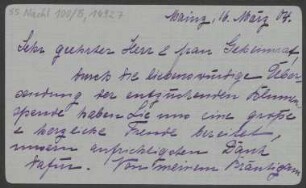 55 Nachl 100/B, 14327
Mainz, 16. März 04.
Sehr geehrter Herr & Frau
durch die liebenswürdige Über-
sendung der entzückenden Blumen-
spende haben Sie uns eine große
& herzliche Freude bereitet,
unsern aufrichtigsten Dank
dafür. Von meinem Bräutigam